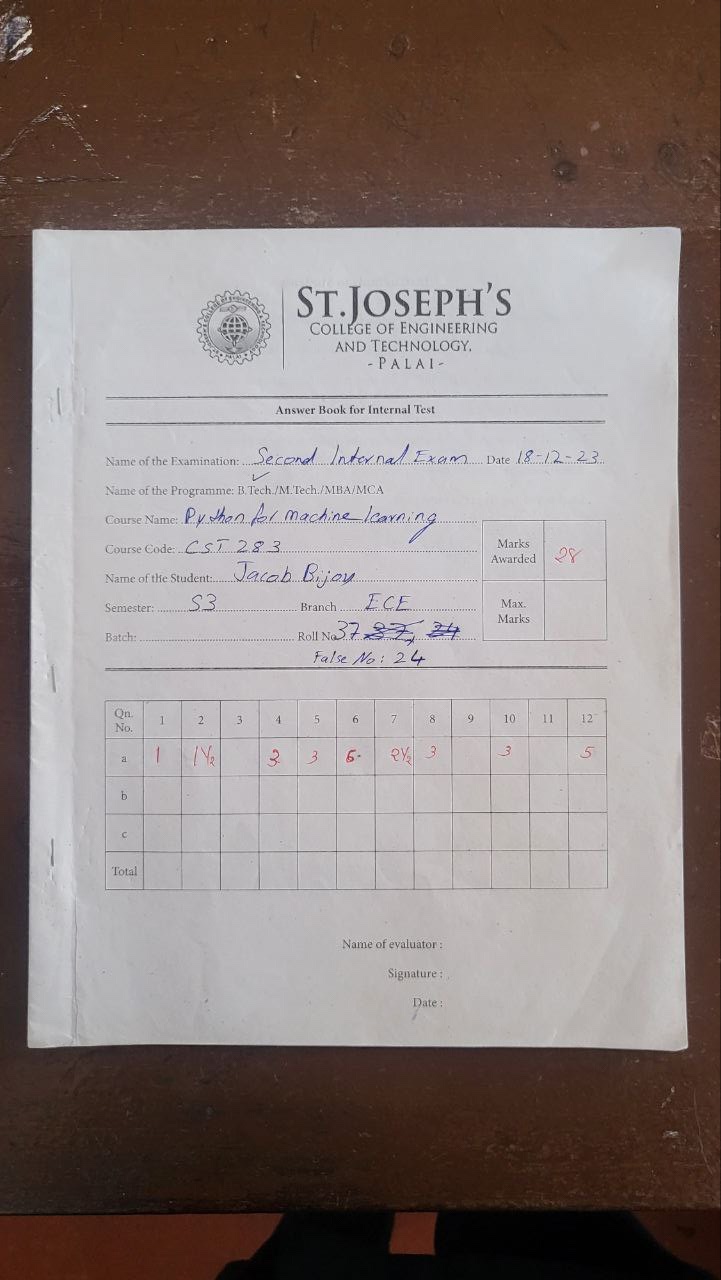 ST.JOSEPH'S
COLLEGE OF ENGINEERING
AND TECHNOLOGY,
-PALAI-
Answer Book for Internal Test
Name of the Examination: Second Internal Exam Date 18-12-23
Name of the Programme: B.Tech./M.Tech./MBA/MCA
Course Name: Python for machine learning
Course Code: CST 283
Marks Awarded 28
Name of the Student: Jacob Bijoy
Semester: S3 Branch ECE
Max. Marks
Batch: Roll No 37
False No: 24
Qn. No. 1 2 3 4 5 6 7 8 9 10 11 12
a 1 1½ 3 3 6 2½ 3 3 5
b
c
Total
Name of evaluator :
Signature :
Date :